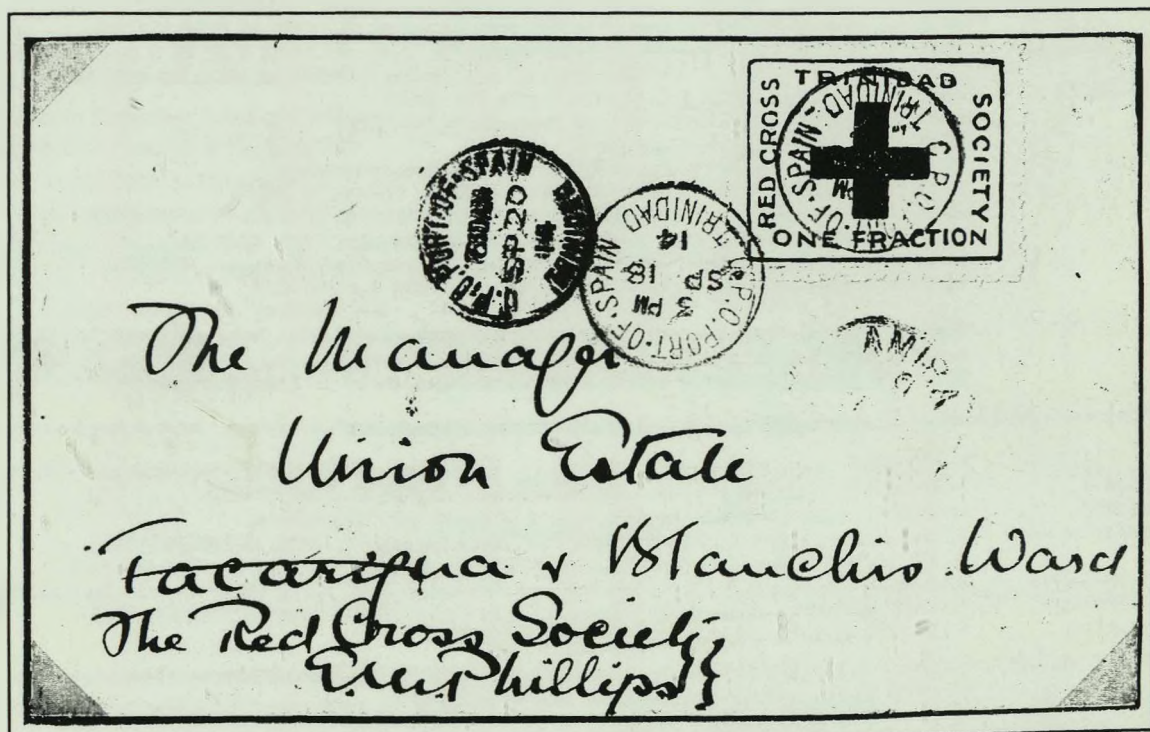 TRINIDAD
RED CROSS
SOCIETY
ONE FRACTION
G.P.O. PORT-OF-SPAIN
TRINIDAD
G.P.O. PORT-OF-SPAIN
SP 20
G.P.O. PORT-OF-SPAIN
TRINIDAD
3 PM
SP 18
14
The Manager
Union Estate
Tacarigua & Blanchis. Ward
The Red Cross Society }
E.M. Phillips }